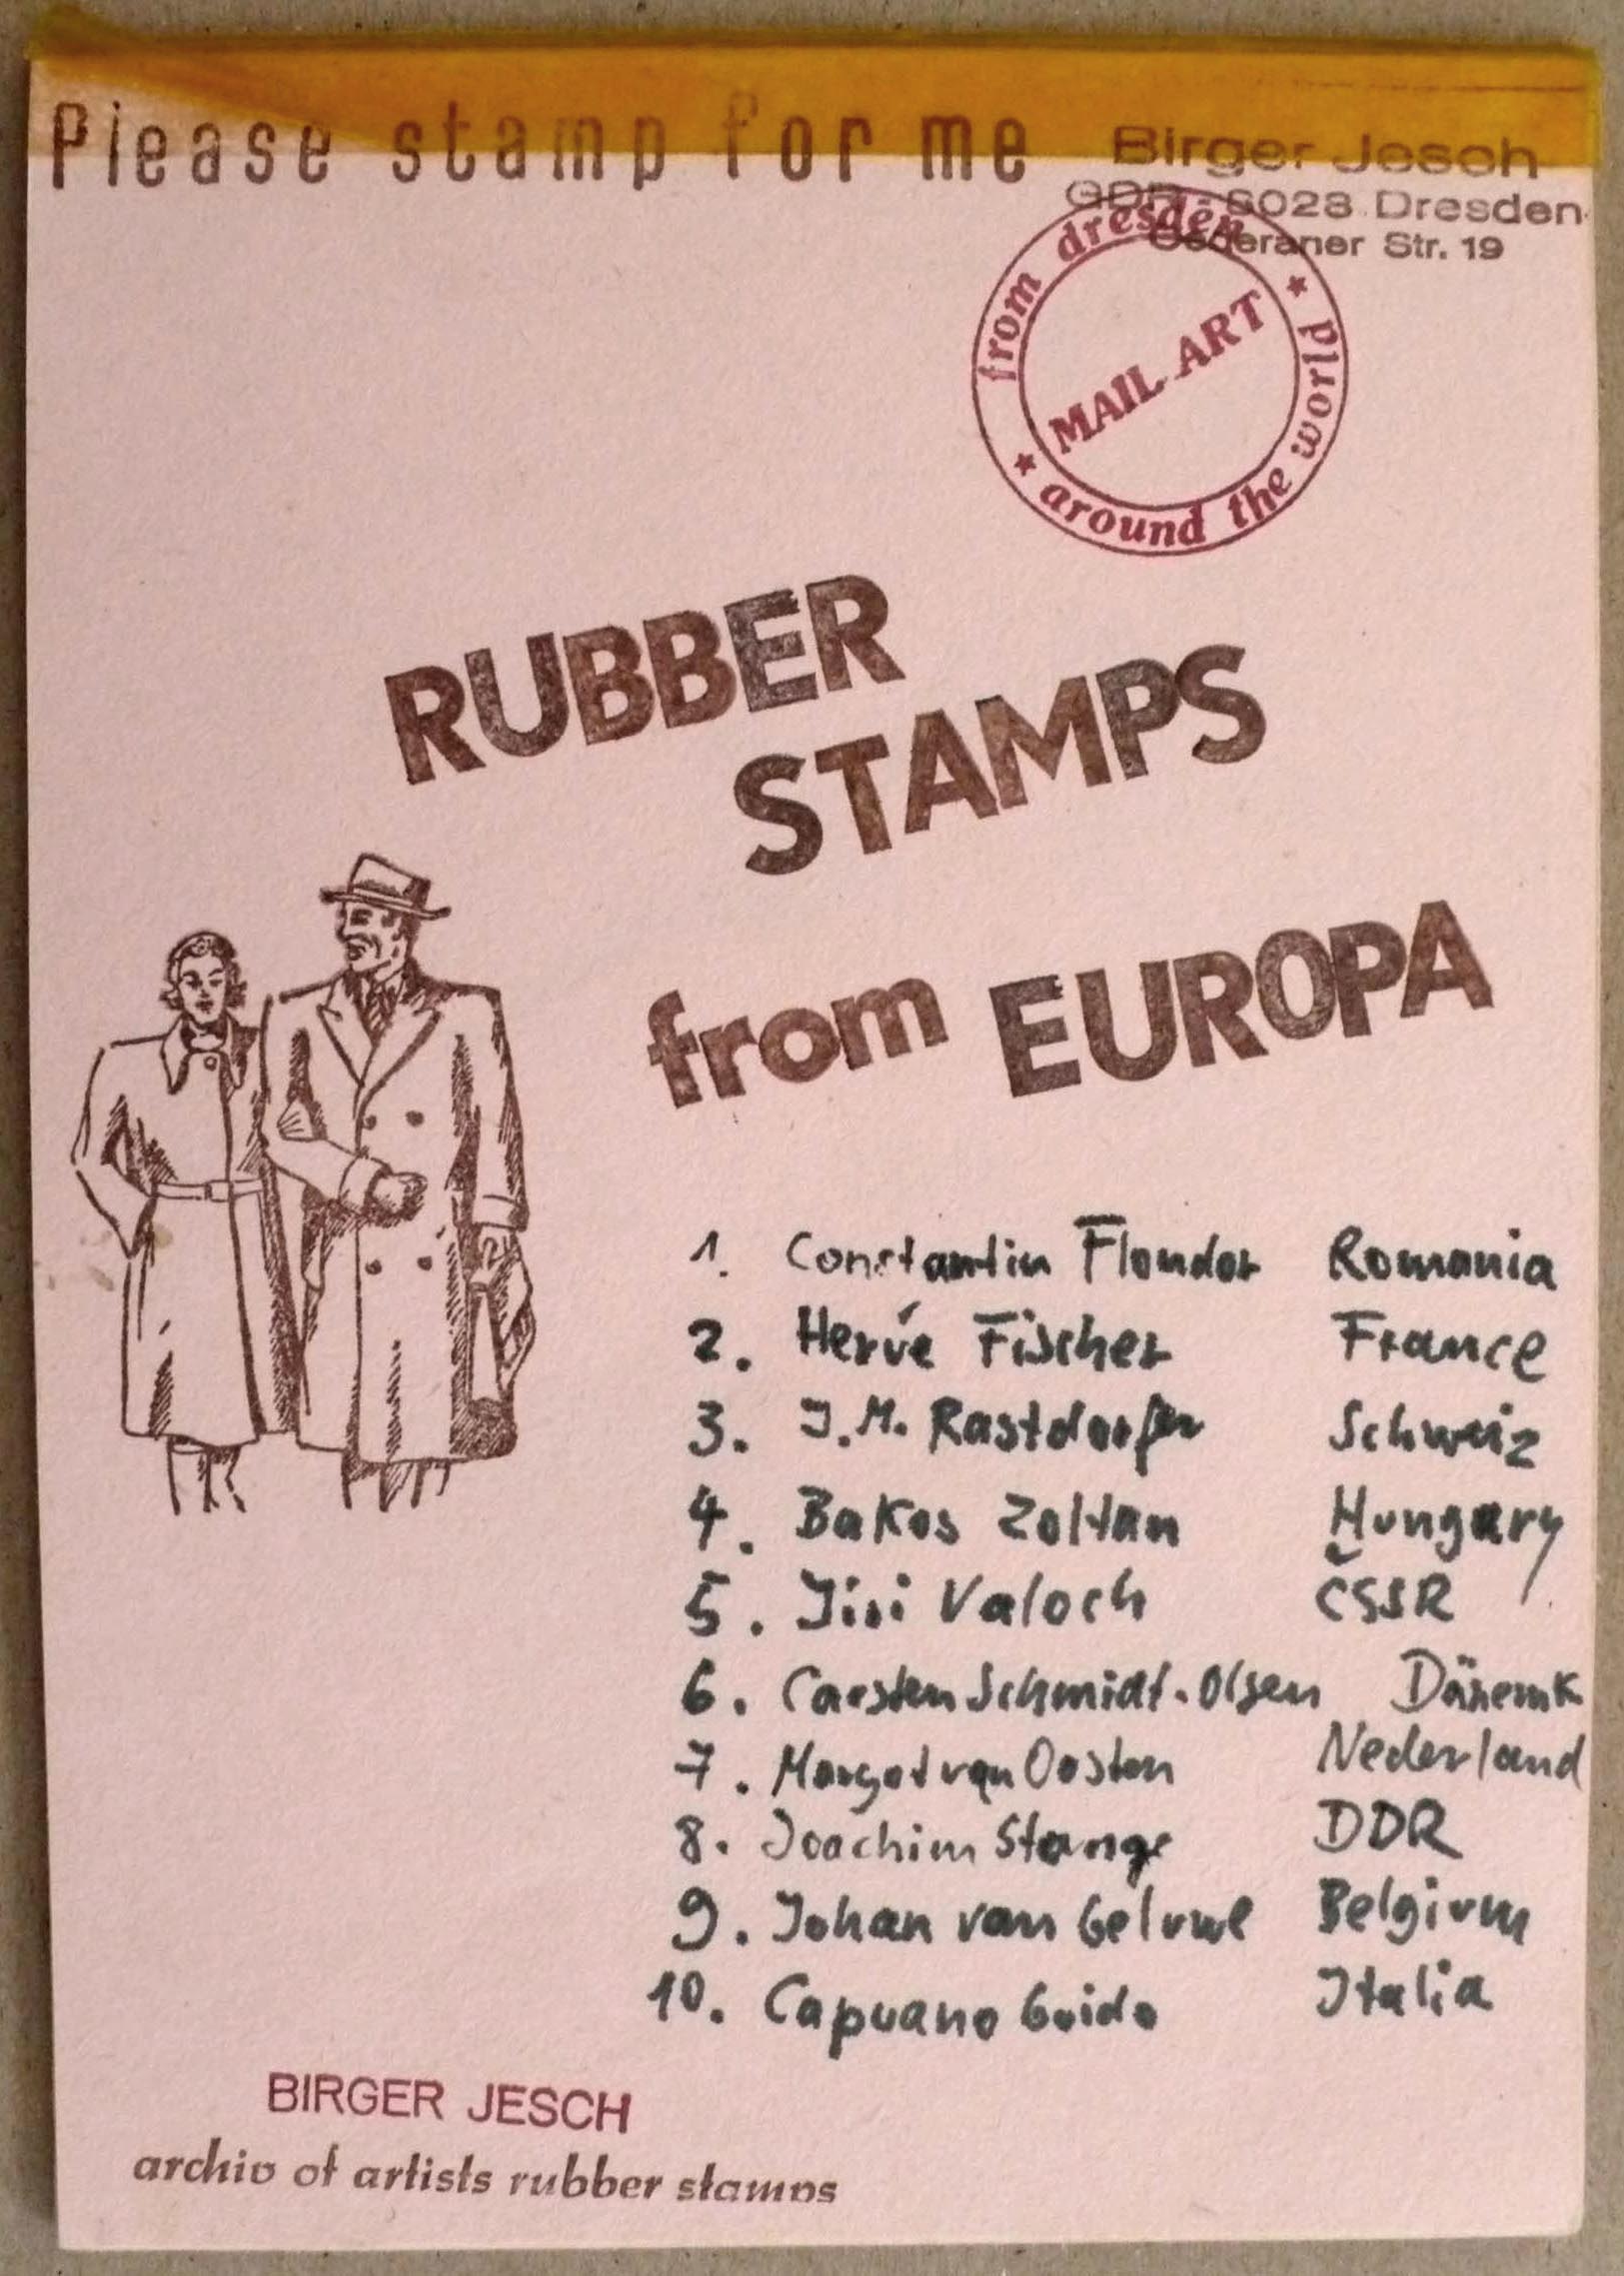 Please stamp for me
Birger Jesch
GDR - 8028 Dresden
Oederaner Str. 19
from dresden * around the world *
MAIL ART
RUBBER
STAMPS
from EUROPA
1. Constantin Flondor Romania
2. Hervé Fischer France
3. J.M. Rastdorfer Schweiz
4. Bakos Zoltan Hungary
5. Jiri Valoch ČSSR
6. Carsten Schmidt-Olsen Dänemk
7. Margot van Oosten Nederland
8. Joachim Stange DDR
9. Johan van Geluwe Belgium
10. Capuano Guido Italia
BIRGER JESCH
archiv of artists rubber stamps